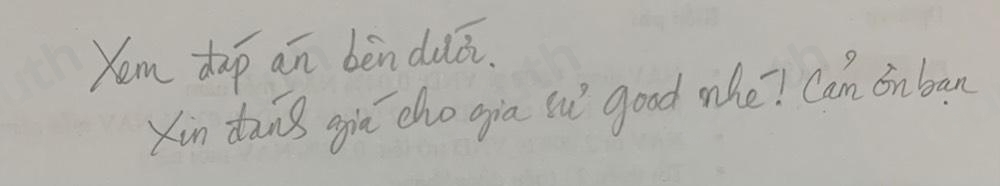 Xem đáp án bên dưới.
Xin đánh giá cho gia sư good nhé! Cảm ơn bạn